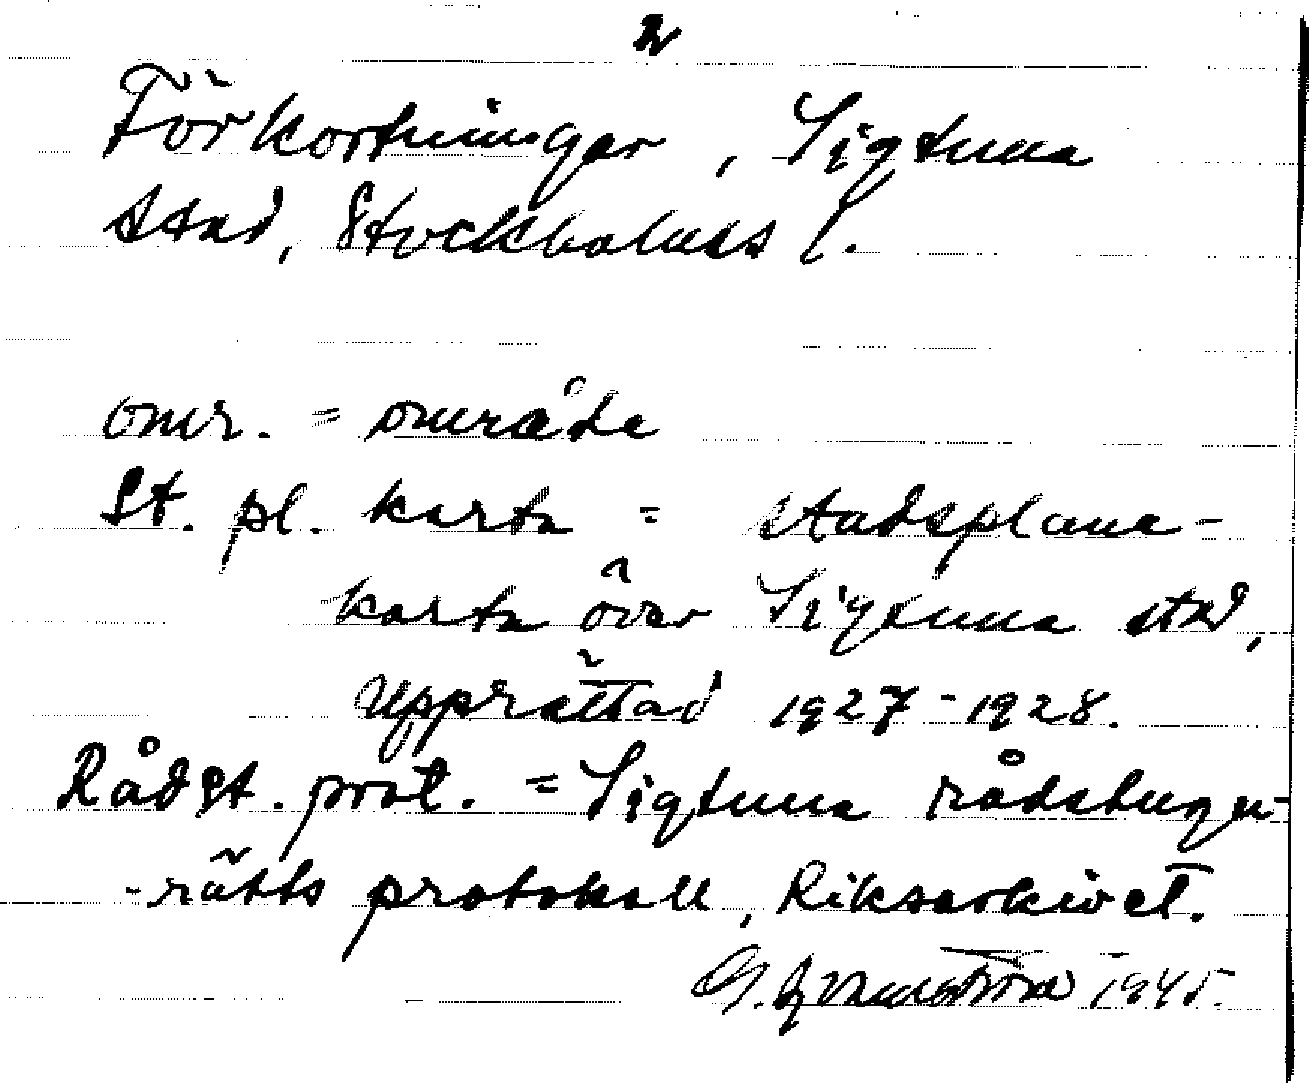 2
Förkortningar, Sigtuna
stad, Stockholms l.
omr. = område
St. pl. karta = stadsplane-
karta över Sigtuna stad,
upprättad 1927-1928.
Rådst. prot. = Sigtuna rådstugu-
-rätts protokoll, Riksarkivet.
G. 1945.